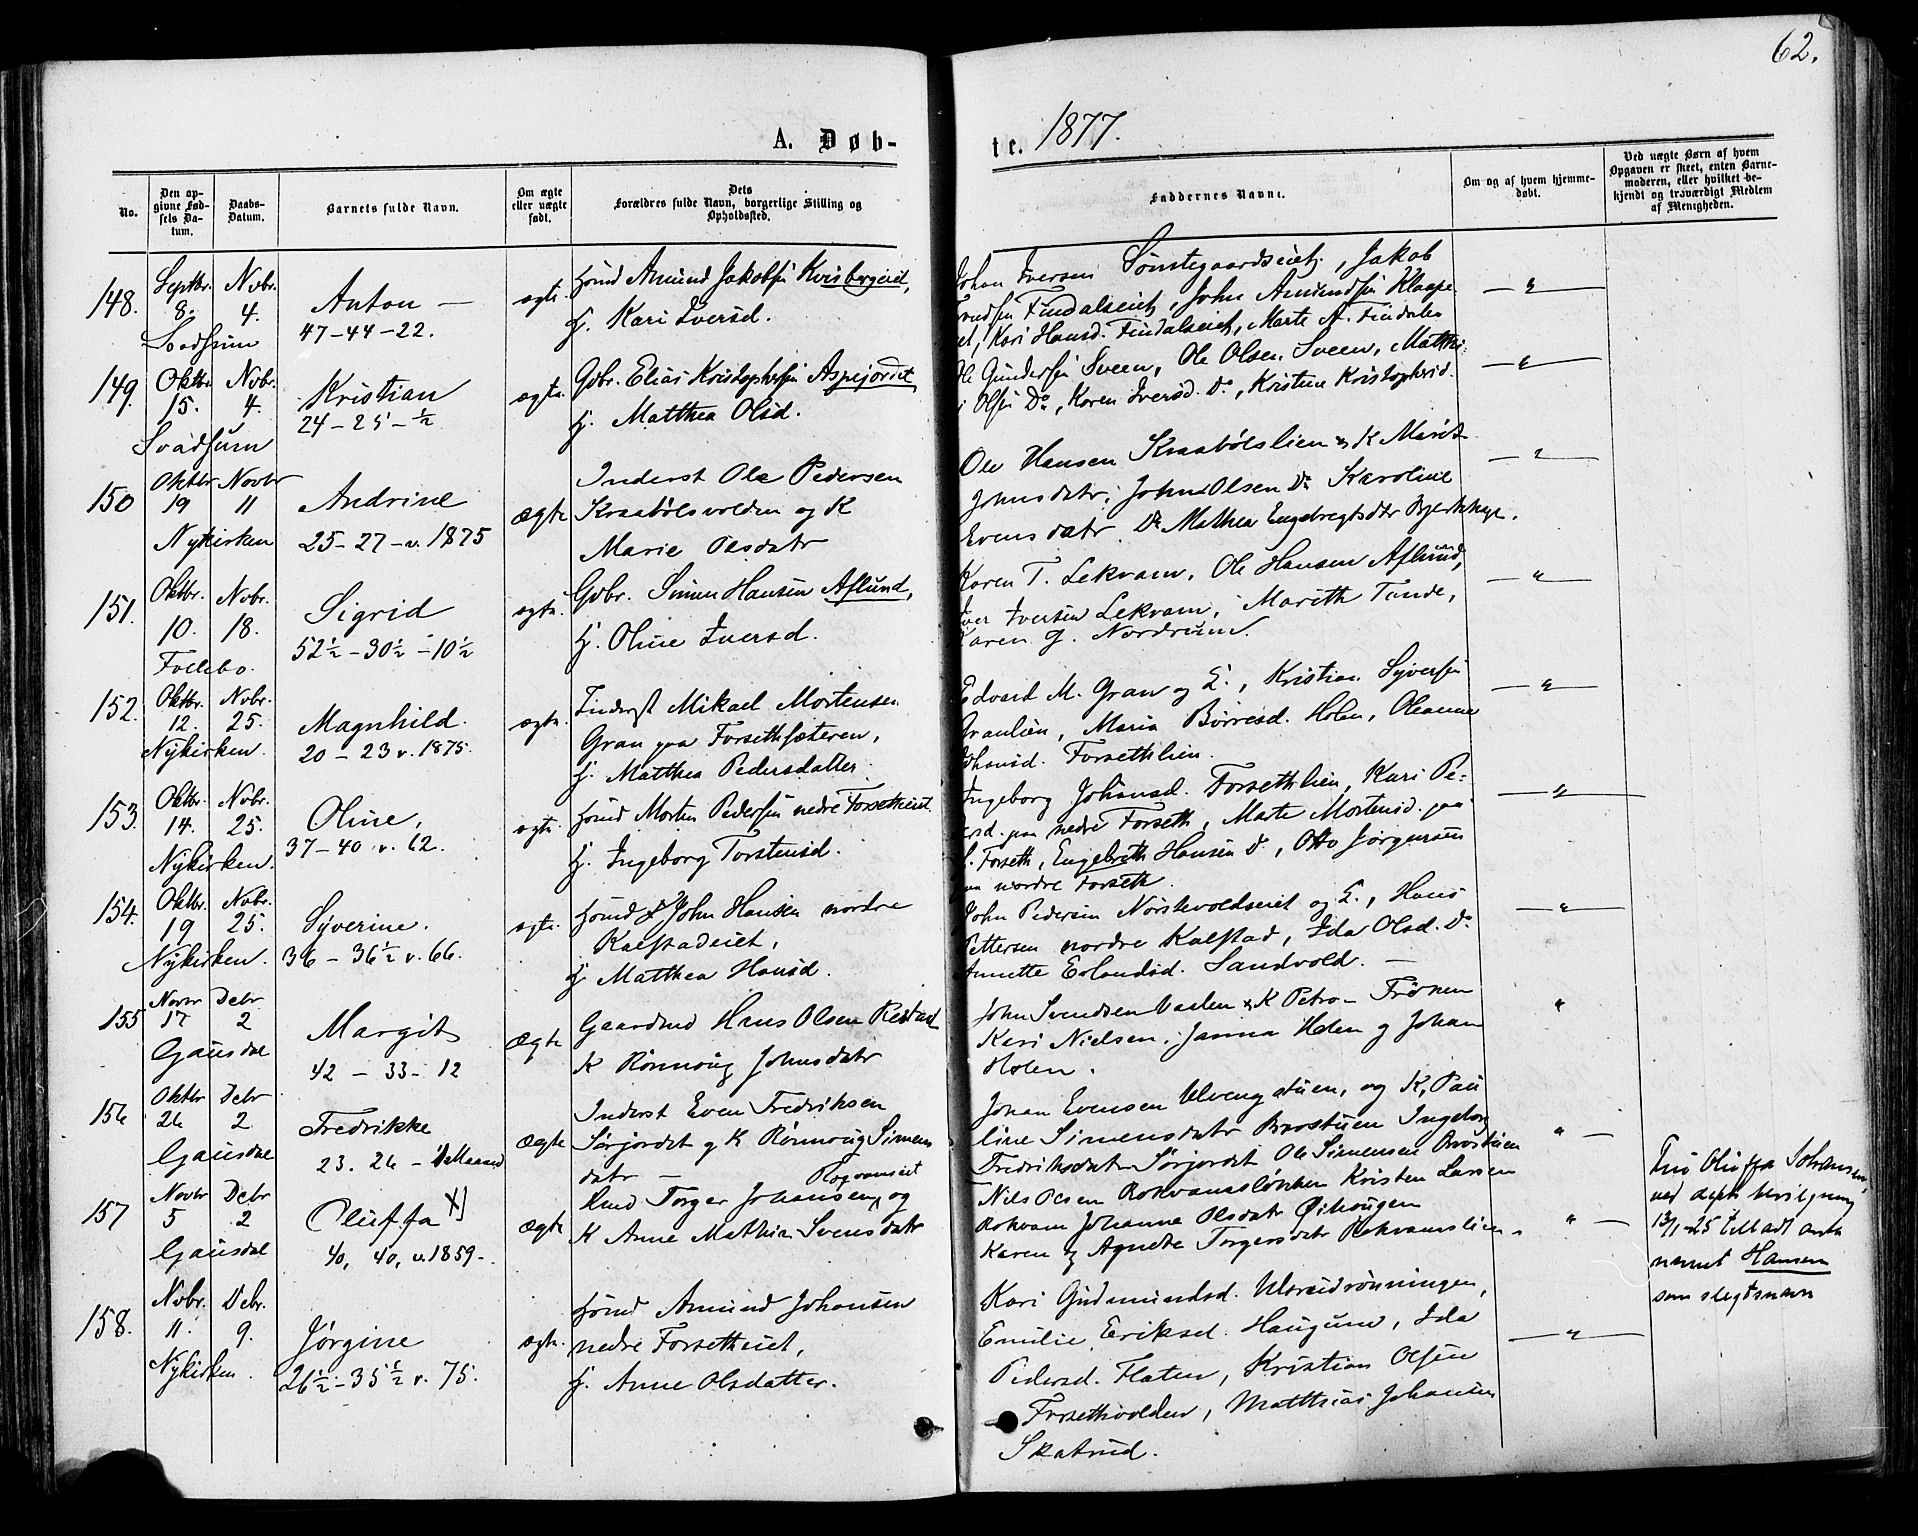 62.
A. Døb-
te. 1877.
No.
Den op-
givne Fød-
sels Da-
tum.
Daabs-
Datum.
Barnets fulde Navn.
Om ægte
eller uægte
født.
Dets
Forældres fulde Navn, borgerlige Stilling og
Opholdssted.
Faddernes Navne.
Om og af hvem hjemme-
døbt.
Ved uægte Børn af hvem
Opgaven er skeet, enten Barne-
moderen, eller hvilket be-
kjendt og troværdigt Medlem
af Menigheden.
148. Septbr. 8. Novbr. 4.
Svadsum
Anton —
47-44-22.
ægte.
Husmd Amund Jakobsen Kvisbergeiet,
H. Kari Iversd.
Johan Iversen Sønstegaardseiet, Jakob
Findalseiet, John Amundsen Klaape
et, Kari Hansd. Findalseiet, Marte A. Findalen
— " —
149. Oktbr. 15. Novbr. 4.
Svadsum
Kristian
24-25-½
ægte.
Gdbr. Elias Kristophersen Aspejordet
H. Matthea Olsd.
Ole Gundersen Sveen, Ole Olsen Sveen, Matthi:
Olsen Do, Karen Iversd. Do, Kristine Kristophersd.
— " —
150 Oktbr 19 Novbr 11
Nykirken
Andrine
25-27-v. 1875
Ægte
Inderst Ole Pedersen
Kraabølsvolden og K
Marie Olsdatr
Ole Hansen Kraabølslien & K Marit
Johnsdatr, John Olsen Do Karoline
Evensdatr Do Mathea Engebregtsdtr
— " —
151. Oktbr. 10. Novbr. 18.
Follebo.
Sigrid
52½-30½-10½
ægte.
Gdbr. Simen Hansen Aflund,
H. Oline Iversd.
Karen T. Lekvam, Ole Hansen Aflund,
Iver Iversen Lekvam, Marith Tande,
Karen G. Nordrum.
— " —
152. Oktbr. 12. Novbr. 25.
Nykirken.
Magnhild.
20-23 v. 1875.
ægte.
Inderst Mikael Mortensen
Gran paa Forsethsæteren,
H. Matthea Pedersdatter.
Edvard M. Gran og H., Kristian Syversen
Granlien, Maria Børresd. Holen, Oleanne
Johansd. Forsethlien.
— " —
153. Oktbr. 14. Novbr. 25.
Nykirken.
Oline,
37-40 v. 62.
ægte.
Husmd Morten Pedersen nedre Forsetheiet
H. Ingeborg Torstensd.
Ingeborg Johansd. Forsethlien, Kari Pe-
dersd. paa nedre Forseth, Marte Mortensd. paa
Forseth, Engebreth Hansen Do, Otto Jørgensen
paa nordre Forseth.
— " —
154. Oktbr. 19 Novbr. 25.
Nykirken.
Syverine.
36-36½ v. 66.
ægte.
Husmd John Hansen nordre
Kalstadeiet,
H. Matthea Hansd.
John Pedersen Norstevoldseiet og H., Hans
Pettersen nordre Kalstad, Ida Olsd. Do
Annette Erlandsd. Sandvold. —
— " —
155 Novbr 17 Debr 2
Gausdal
Margit
42-33-12
Ægte
Gaardmd Hans Olsen Restad
K Rønnoug Johnsdatr
John Svendsen Baslen & K Petro- Frønen
Kari Nielsen, Janna Holen og Johan
Holen.
"
156 Oktbr 26 Debr 2
Gausdal
Fredrikke
23. 26 - 1 Maaned
Ægte
Inderst Even Fredriksen
Sørjordet og K Rønnoug Simens
datr —
Johan Evensen Ulvengstuen, og K, Pau
line Simensdatr Brostuen Ingeborg
Fredriksdatr Sørjordet Ole Simensen Brostuen
" —
157 Novbr 5 Debr 2
Gausdal
Oluffa X)
40, 40, v. 1859-.
Ægte
Rokvamseiet
Husmd Torger Johansen, og
K Anne Mathia Svensdatr
Nils Olsen Rokvamsløkken Kristen Larsen
Rokvam Johanne Olsdatr Øihaugen
Karen og Agnethe Torgersdatr Rokvamslien.
" —
Fru Oluffa Johansen,
ved depts bevilgning
13/1-25 tilladt anta
navnet Hansen
som slegtsnavn
158. Novbr. 11. Debr. 9.
Nykirken.
Jørgine
26½-35½ v. 75.
ægte.
Husmd Amund Johansen
nedre Forsetheiet,
H. Anne Olsdatter.
Kari Gudmundsd. Ulvsudrønningen,
Emilie Eriksd. Haugum, Ida
Pedersd. Flaten, Kristian Olsen
Forsethvolden, Matthias Johansen
Skatrud.
— " —